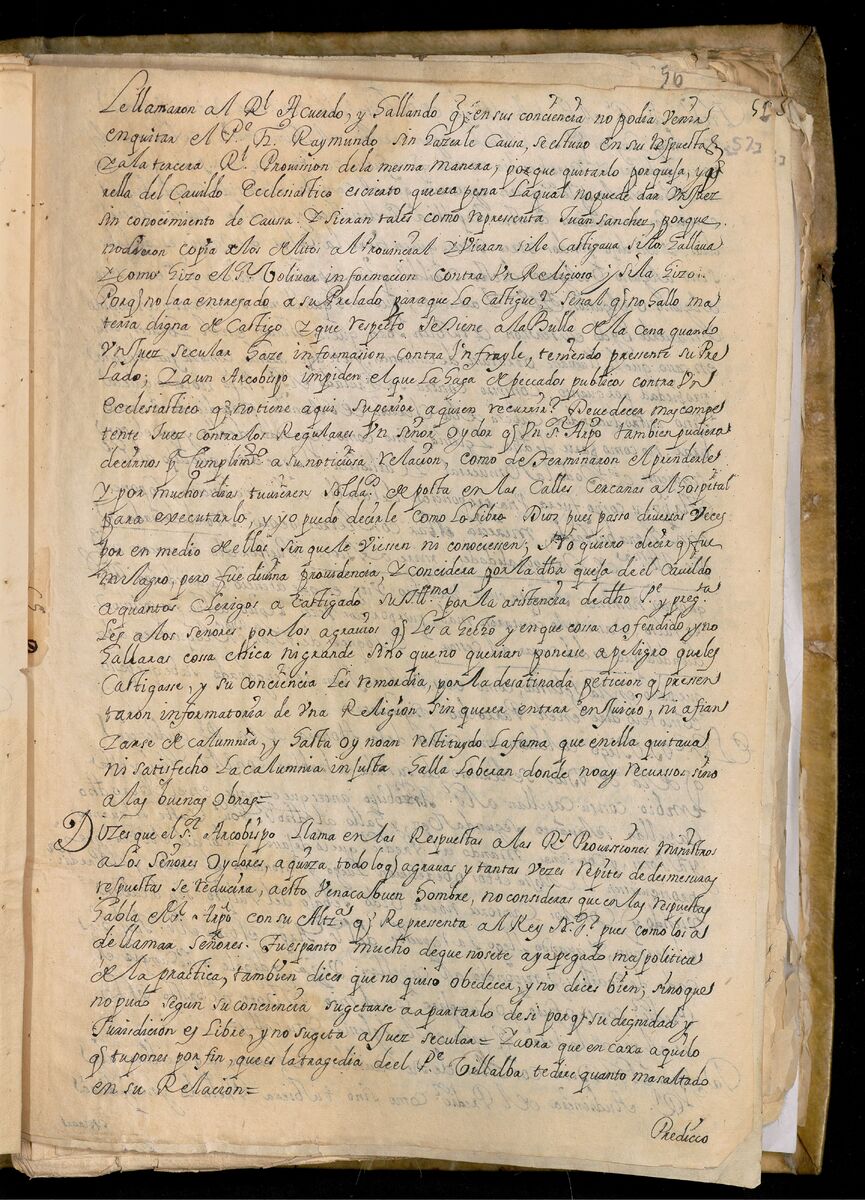 56
525
Lellamaron al Rl Acuerdo, y hallando q̃ en sus conciencia no podia venir
en quitar el Pe. fr. Raymundo sin hazerle Causa, se estuvo en su respuesta
Y a la tercera Rl Provision de la mesma manera, porque quitarlo por quexa, y q̃
rella del Cavildo Ecclesiastico es cierto que era pena Laqual no puede dar Un Juez
sin conocimiento de Caussa. Y si eran tales como representa Juan Sanchez, porque
no dieron copia de los delitos al Provincial Y vieran si le Castigava si los hallava
Y como hizo el Sr Bolivar informacion contra Un Religioso y si la hizo:
Porq̃ no la a entregado a su Prelado para que Lo Castigue? Señal q̃ no hallo ma
teria digna de Castigo Y que respeto se tiene a la Bulla de la cena quando
Un Juez secular haze informasion contra Un frayle, teniendo presente su Pre
Lado; Y a un Arcobispo impiden el que La haga de peccados publicos contra Un
Ecclesiastico q̃ no tiene aqui superior a quien recurrir? Deve de cer mas compe
tente Juez contra los Regulares Un Señor Oydor q̃ Un Sr. Arpo tambien pudiera
decirnos pa. Cumplimto a su noticiosa relacion, como determinaron el prenderle
Y por muchos dias tuvieren soldados de posta en las Calles cercanas al hospital
para executarlo, y yo puedo decirle como Lo Libro Dios pues passo diversas veces
por en medio de ellos sin que le viessen ni conociessen; No quiero decir q̃ fue
milagro, pero fue divina providencia, Y concidera por la dha quexa de el Cavildo
a quantos Clerigos a Castigado su Illma. por la asistencia de dho Pe. y pregta
Les a los señores por los agravios q̃ Les a hecho y en que cossa a ofendido, y no
hallaras cossa chica ni grande sino que no querian ponerse a peligro que les
Castigasse, y su conciencia Les remordia, por la desatinada peticion q̃ presen
taron informatoria de Una Religion sin querer entrar en Juicio, ni afian
zarse de calumnia, y hasta oy no an restituydo La fama que en ella quitava
ni satisfecho La calumnia injusta halla Lo beran donde no ay recursso sino
a las buenas Obras=
Dizes que el Sr. Arcobispo Llama en las Respuestas a las Rs Provissiones ministros
a Los Señores Oydores, a quiza todo lo q̃ agravas y tantas Vezes repites de desmesuras
respuestas se reducira, a esto Ven aca buen hombre, no consideras que en las respuestas
habla el Sr. Arpo con su Altza q̃ Representa al Rey N. Sr. pues como los a
de llamar Señores. Fuespanto mucho de que no se te aya pegado mas politica
de la practica, tambien dices que no quiso obedecer, y no dices bien, sino que
no pudo segun su conciencia sugetarse a apartarlo de si porq̃ su dignidad y
Jurisdicion es Libre, y no sugeta a Juez secular= Y aora que encaxa aquelo
q̃ tu pones por fin, que es la tragedia de el Pe Villalba te dire quanto mas altado
en su Relacion=
Predicco